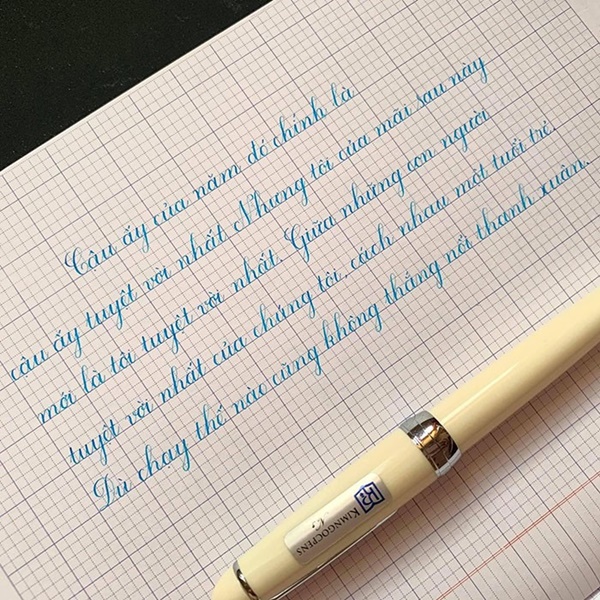 Cậu ấy của năm đó chính là
cậu ấy tuyệt vời nhất Nhưng tôi của mãi sau này
mới là tôi tuyệt vời nhất. Giữa những con người
tuyệt vời nhất của chúng tôi, cách nhau một tuổi trẻ.
Dù chạy thế nào cũng không thắng nổi thanh xuân.
KIMNGOCPENS